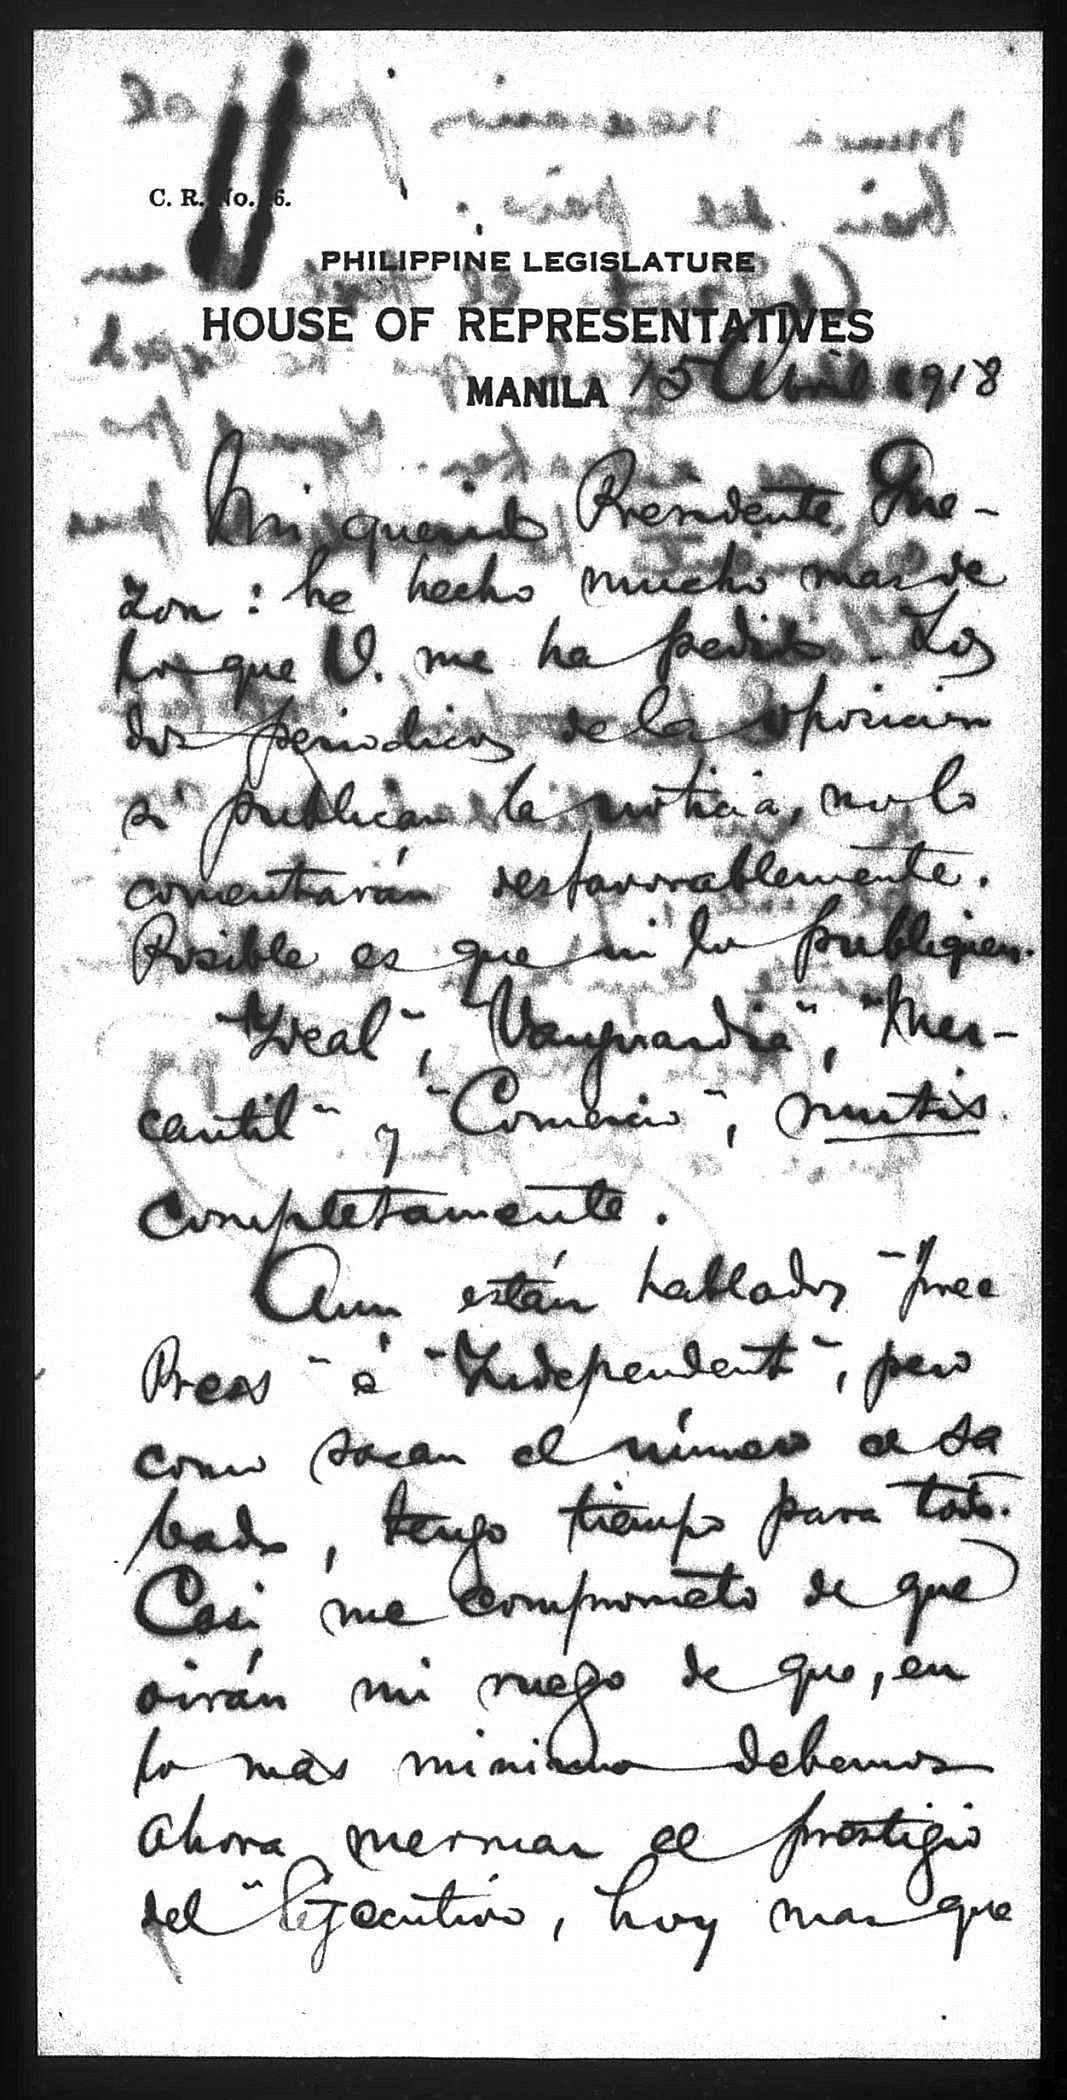 C. R. No. 6.
PHILIPPINE LEGISLATURE
HOUSE OF REPRESENTATIVES
MANILA 15 Abril 1918
Mi querido Presidente Que-
zon: he hecho mucho mas de
lo que V. me ha pedido. Los
dos periodicos de la oposicion
si publican la noticia, no lo
comentarán desfavorablemente.
Posible es que ni lo publiquen.
"Ideal", "Vanguardia", "Mer-
cantil" y "Comercio", mutis
completamente.
Aun están hablados "Free
Press" é "Independent", pero
como sacan el número el sa
bado, tengo tiempo para todo.
Casi me comprometo de que
oirán mi ruego de que, en
lo más minimo debemos
ahora mermar el prestigio
del "Ejecutivo, hoy mas que